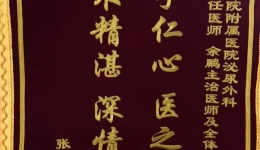 院附属医院泌尿外科
任医师 余鹏主治医师及全体
仁心 医之
精湛 深情
张